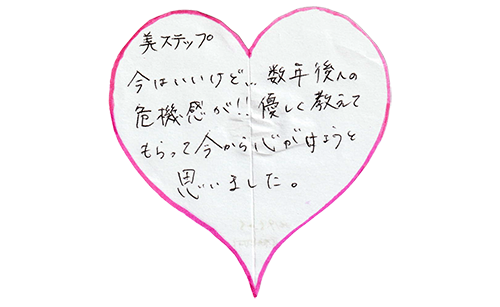 美ステップ
今はいいけど... 数年後への
危機感が!! 優しく教えて
もらって今から心がけようと
思いました。